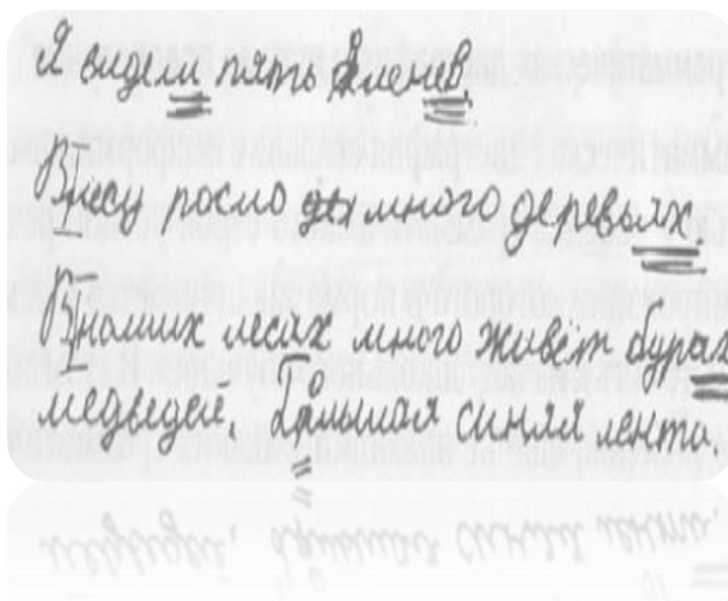 Я видели пять оленев.
Влесу росло много деревьях.
Внаших лесах много живёт бурах
медведей. Большая синяя лента.